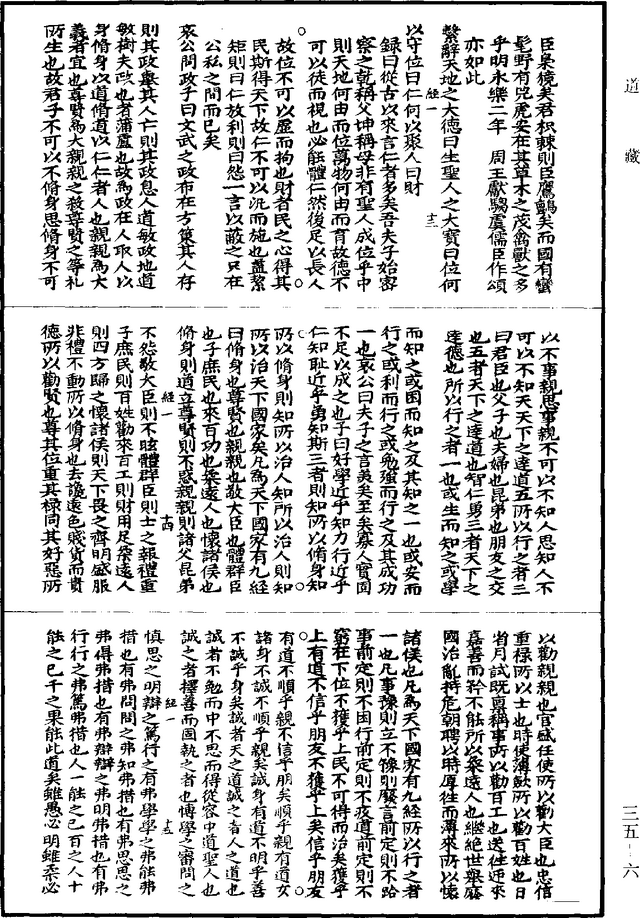 道藏
三五—六
臣梟獍矣君枳棘則臣鷹鸇矣而國有蠻
髦野有兕虎安在其草木之茂禽獸之多
乎明永樂二年 周王獻騶虞儒臣作頌
亦如此
繫辭天地之大德曰生聖人之大寶曰位何
經一 十三
以守位曰仁何以聚人曰財
錄曰從古以來言仁者多矣吾夫子始密
察之乾稱父坤稱母非有聖人成位乎中
則天地何由而位萬物何由而育故德不
可以徒而視也必能體仁然後足以長人
故位不可以虛而拘也財者民之心得其
民斯得天下故仁不可以汎而施也蓋絜
矩則曰仁放利則曰怨一言以蔽之只在
公私之間而已矣
哀公問政子曰文武之政布在方策其人存
則其政舉其人亡則其政息人道敏政地道
敏樹夫政也者蒲盧也故為政在人取人以
身脩身以道脩道以仁仁者人也親親為大
義者宜也尊賢為大親親之殺尊賢之等礼
所生也故君子不可以不脩身思脩身不可
以不事親思事親不可以不知人思知人不
可以不知天天下之達道五所以行之者三
曰君臣也父子也夫婦也昆弟也朋友之交
也五者天下之達道也智仁勇三者天下之
達德也所以行之者一也或生而知之或學
而知之或困而知之及其知之一也或安而
行之或利而行之或勉強而行之及其成功
一也哀公曰夫子之言美矣至矣寡人實固
不足以成之也子曰好學近乎知力行近乎
仁知耻近乎勇知斯三者則知所以脩身知
所以脩身則知所以治人知所以治人則知
所以治天下國家矣凡為天下國家有九經
曰脩身也尊賢也親親也敬大臣也體群臣
也子庶民也來百功也柔遠人也懷諸侯也
脩身則道立尊賢則不惑親親則諸父昆弟
經一 十四
不怨敬大臣則不眩體群臣則士之報禮重
子庶民則百姓勸來百工則財用足柔遠人
則四方歸之懷諸侯則天下畏之齊明盛服
非禮不動所以脩身也去讒遠色賤貨而貴
德所以勸賢也尊其位重其祿同其好惡所
以勸親親也官盛任使所以勸大臣也忠信
重祿所以士也時使薄斂所以勸百姓也日
省月試既稟稱事所以勸百工也送往迎來
嘉善而矜不能所以柔遠人也繼絕世舉廢
國治亂持危朝聘以時厚往而薄來所以懷
諸侯也凡為天下國家有九經所以行之者
一也凡事豫則立不豫則廢言前定則不跲
事前定則不困行前定則不疚道前定則不
窮在下位不獲乎上民不可得而治矣獲乎
上有道不信乎朋友不獲乎上矣信乎朋友
有道不順乎親不信乎朋矣順乎親有道友
諸身不誠不順乎親矣誠身有道不明乎善
不誠乎身矣誠者天之道誠之者人之道也
誠者不勉而中不思而得從容中道聖人也
誠之者擇善而固執之者也博學之審問之
經一 十五
慎思之明辯之篤行之有弗學學之弗能弗
措也有弗問問之弗知弗措也有弗思思之
弗得弗措也有弗辯辯之弗明弗措也有弗
行行之弗篤弗措也人一能之己百之人十
能之己千之果能此道矣雖愚必明雖柔必